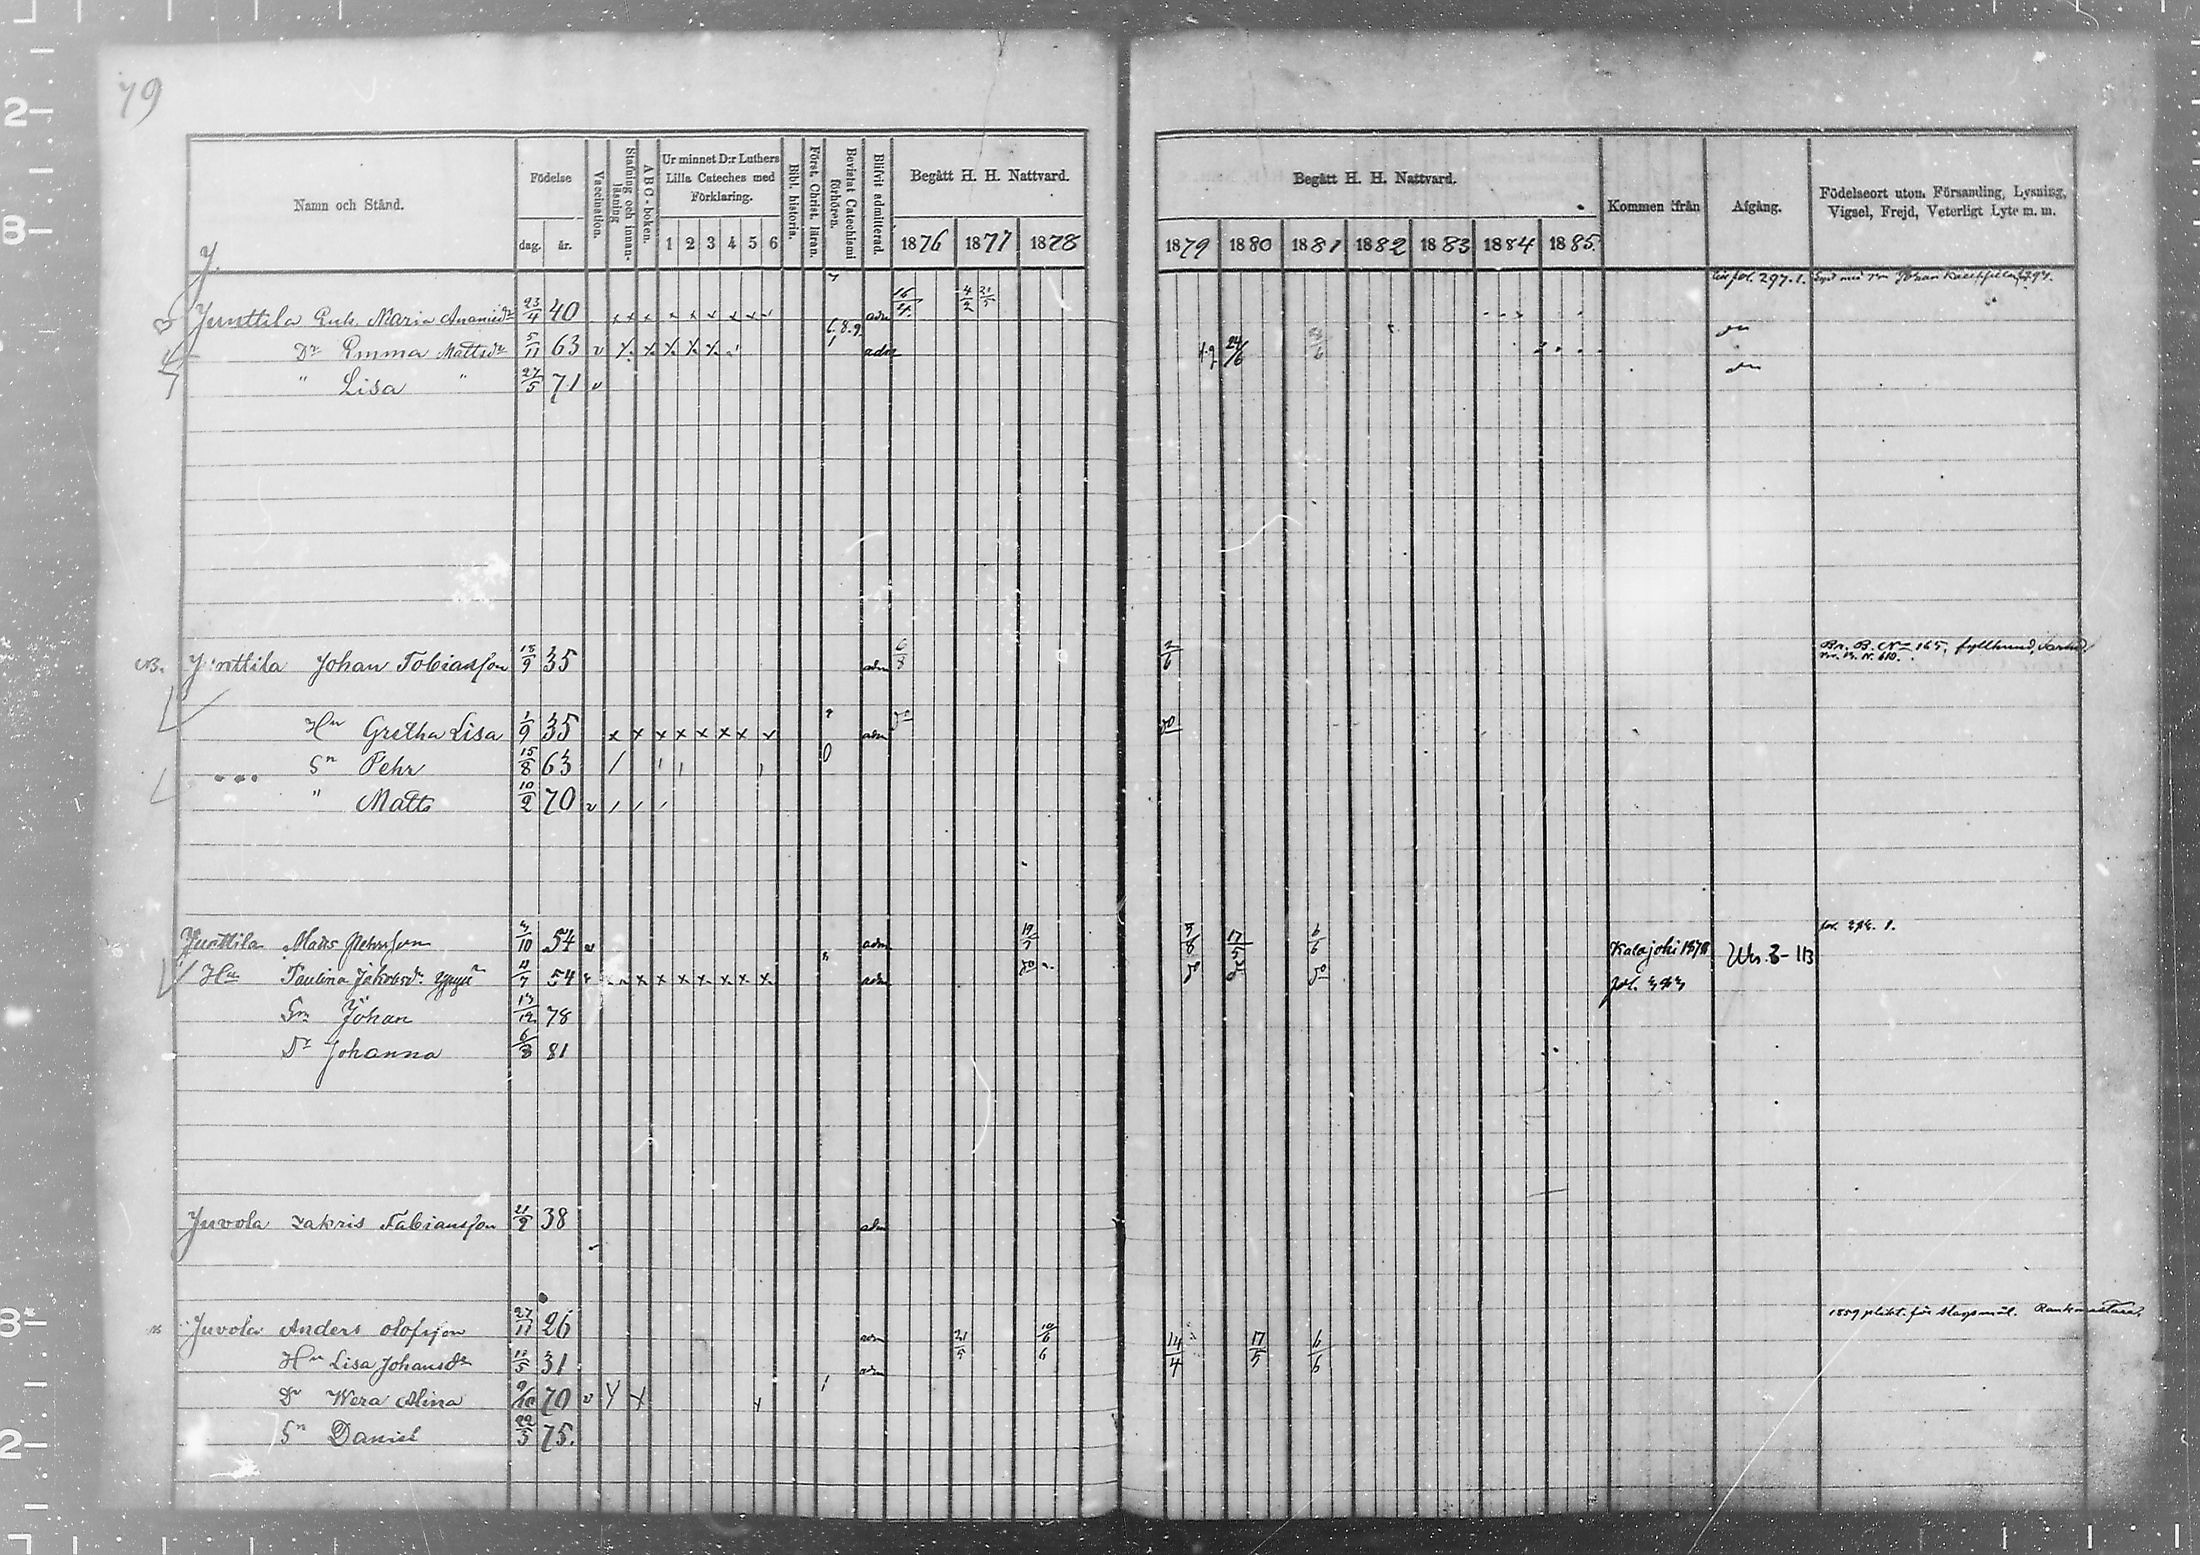 79
Namn och Stånd.
Födelse
dag. år.
Vaccination.
Stafning och innan-läsning
ABC-boken.
Ur minnet D:r Luthers
Lilla Cateches med
Förklaring.
1 2 3 4 5 6
Bibl. historia.
Först. Christ. läran.
Bevistat Catechismi förhören.
Blifvit admitterad.
Begått H. H. Nattvard.
1876 1877 1878
Begått H. H. Nattvard.
1879 1880 1881 1882 1883 1884 1885
Kommen ifrån
Afgång.
Födelseort utom Församling, Lysning,
Vigsel, Frejd, Veterligt Lyte m. m.
J.
fol. 297. 1.
Junttila Enk. Maria Ananiedr 23/4 40 adm 16/4 4/2
Dr Emma Mattsdr 5/11 63 v 6.8.9 adm 24/6
" Lisa " 27/5 71 v
Junttila Johan Tobiasson 18/9 35 adm 6/8 2/6 Br. B. No 165.
Hu Gretha Lisa 1/9 35 adm do do
Sn Pehr 15/8 63 0
" Matts 10/2 70 v
Junttila Matts Pehrsson 10 54 v adm 19 17/5 6/6 Kalajoki 1878
Hu Paulina Jakobsdr 54 adm do do do fol.
Sn Johan 12 78
Dr Johanna 6/8 81
Juvola Zakris Fabiansson 21/2 38 adm
Juvola Anders Olofsson 27/11 26 adm 21/5 10/6 14/4 17/5 6/6 1859 plikt. för slagsmål.
Hu Lisa Johansdr 5 31 adm
Dr Wera Alina 9/10 70 v
Sn Daniel 22/5 75.